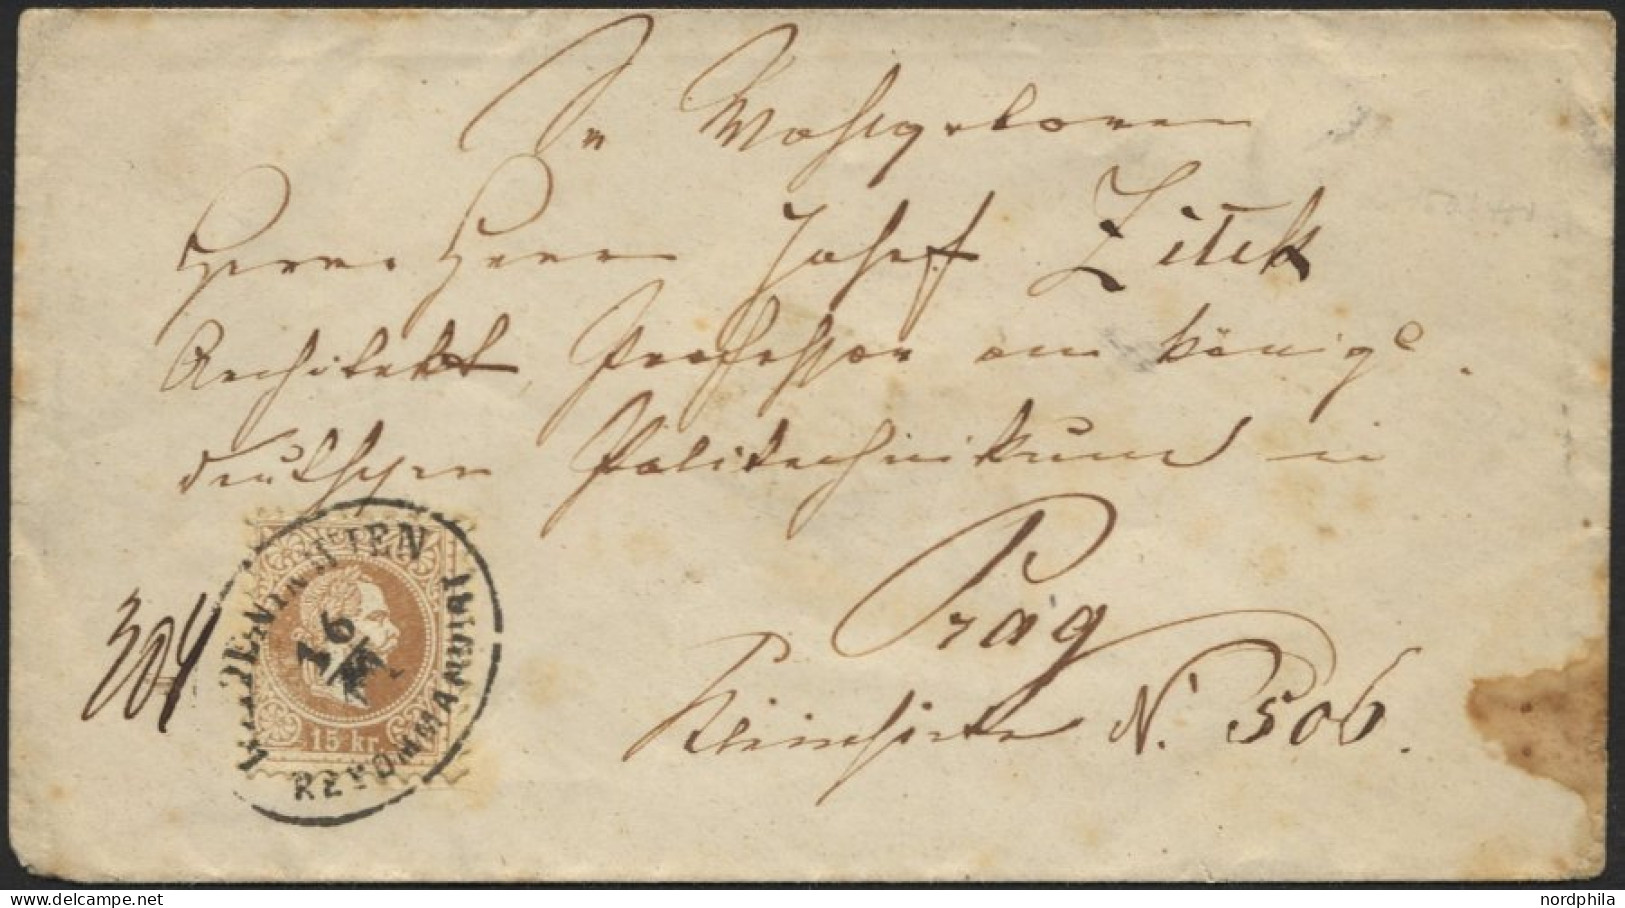 Sr Wohlgeboren
Herrn Herrn Josef Zitek
Architekt, Professor am königl.
deutschen Politechnikum in
Prag
Kleinseite N. 506.
304
16
RECOMMANDIRT
15 kr.
nordphila